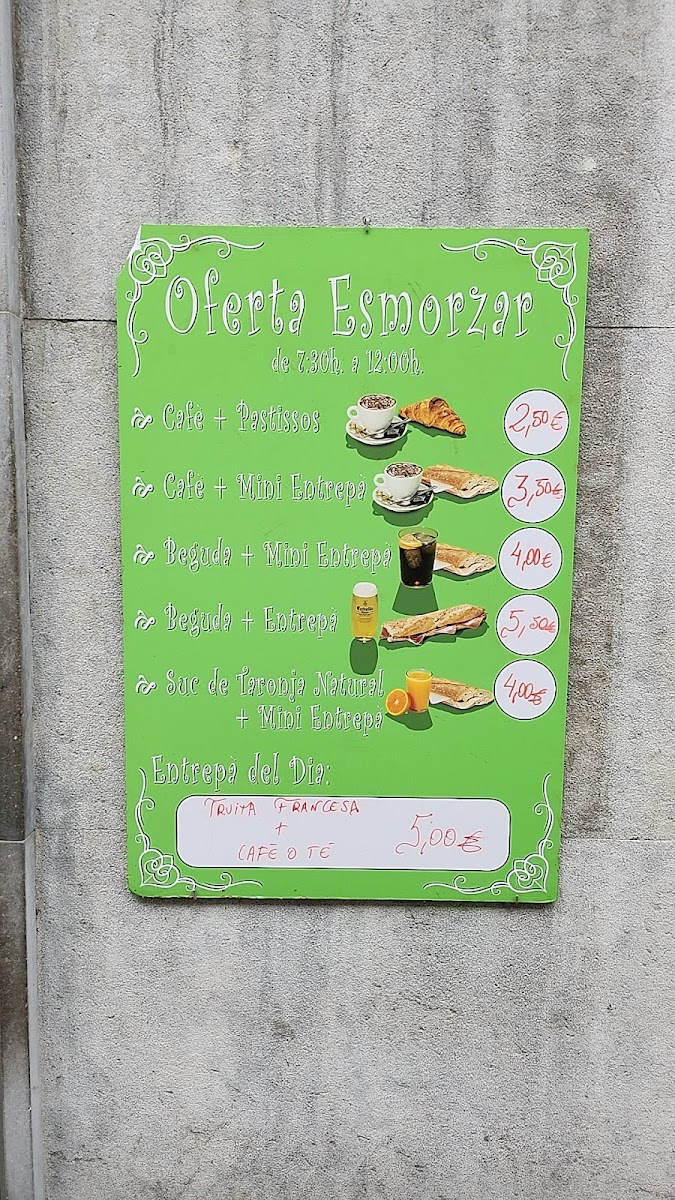 Oferta Esmorzar
de 7:30h. a 12:00h.
Cafè + Pastissos 2,50€
Cafè + Mini Entrepà 3,50€
Beguda + Mini Entrepà 4,00€
Estrella
Beguda + Entrepà 5,50€
Suc de Taronja Natural 4,00€
+ Mini Entrepà
Entrepà del Dia:
TRUITA FRANCESA
+
CAFÈ O TÉ 5,00€